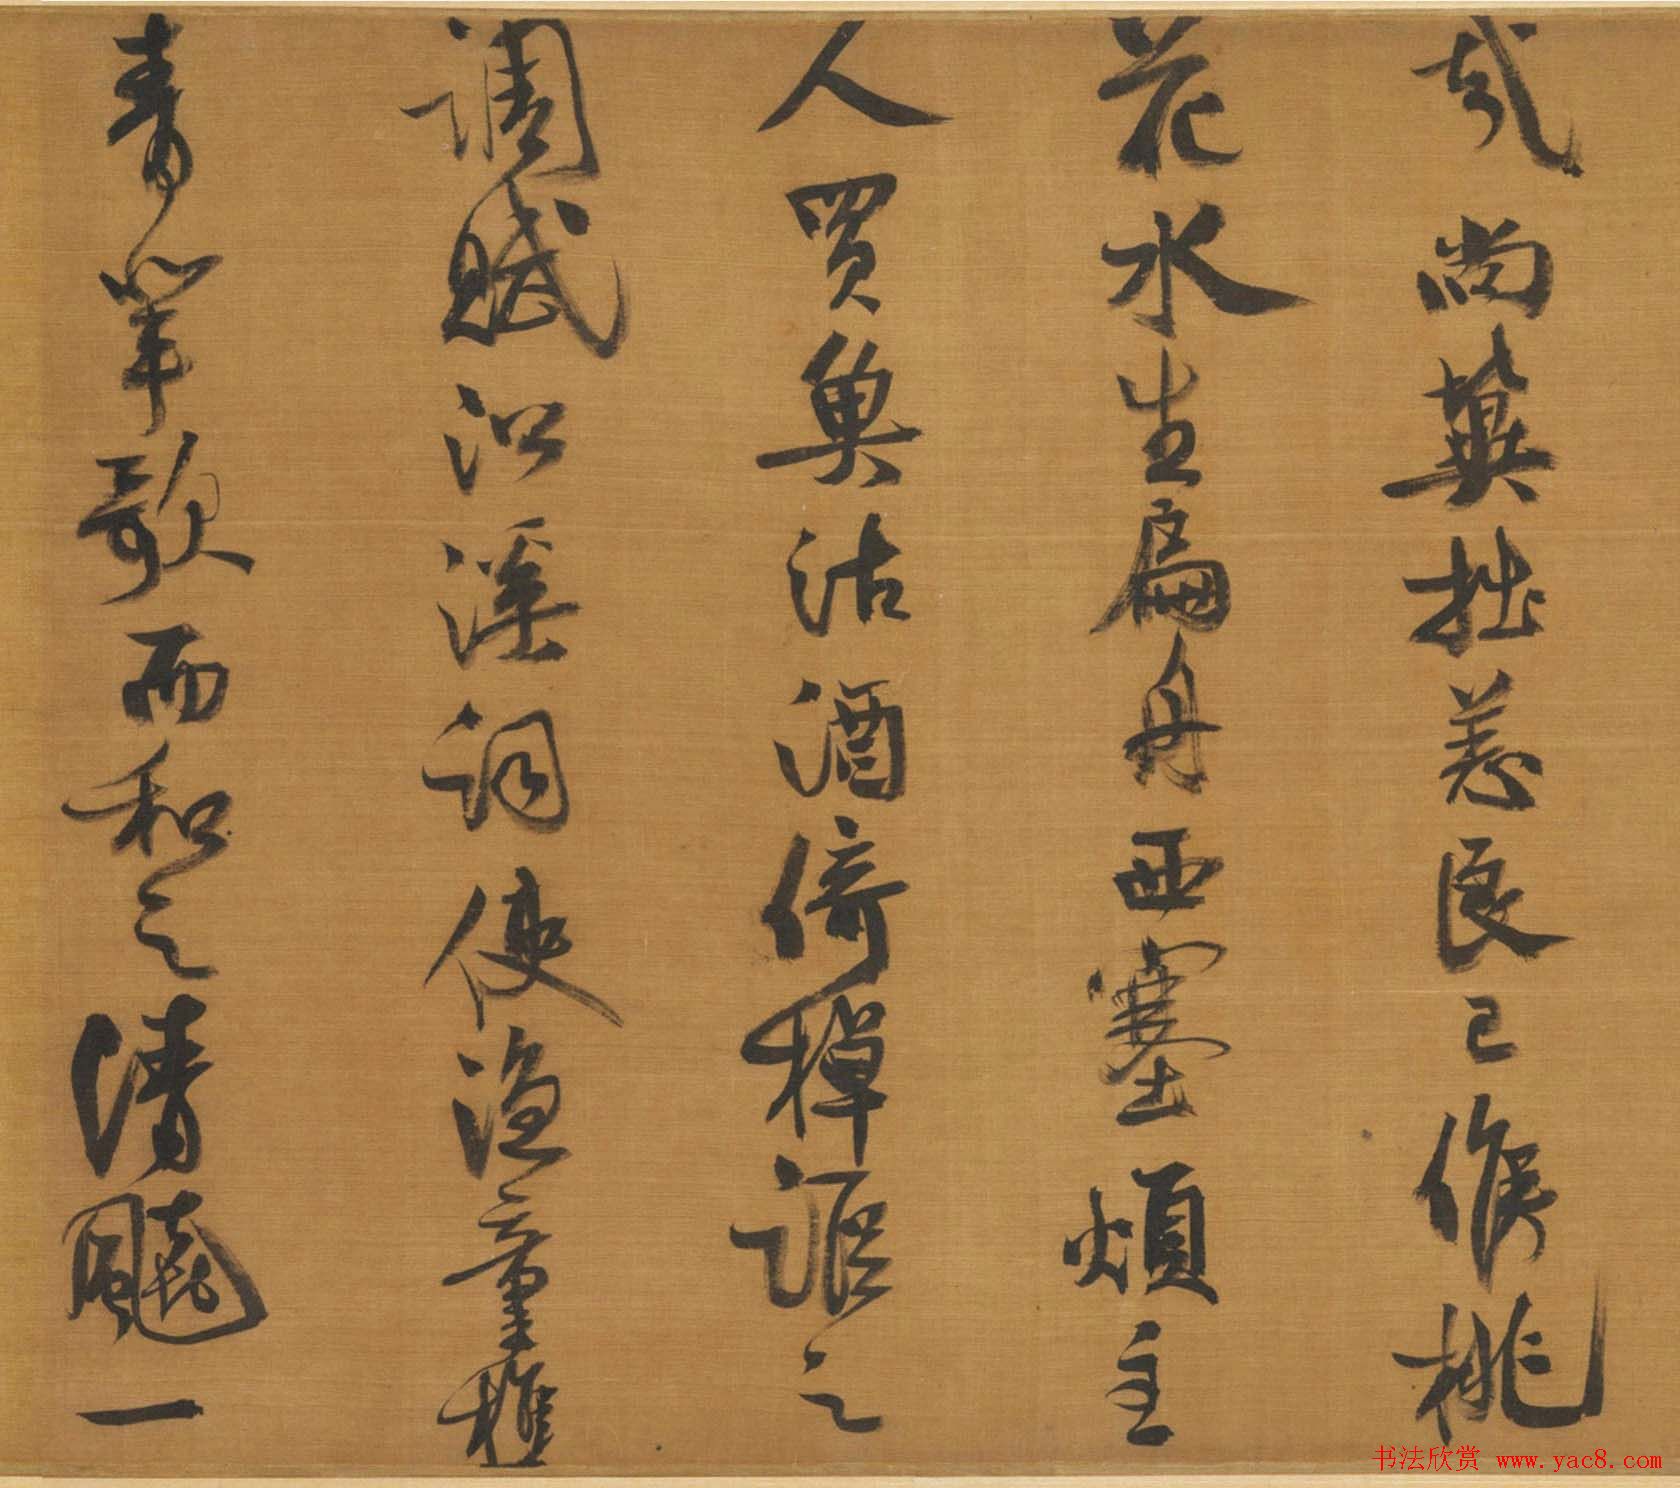 哉尚冀拙恙良已候桃
花水生扁舟西塞煩主
人買魚沽酒倚棹謳之
調賦沿溪詞使漁童樵
青竿歌而和之清飈一
书法欣赏 www.yac8.com